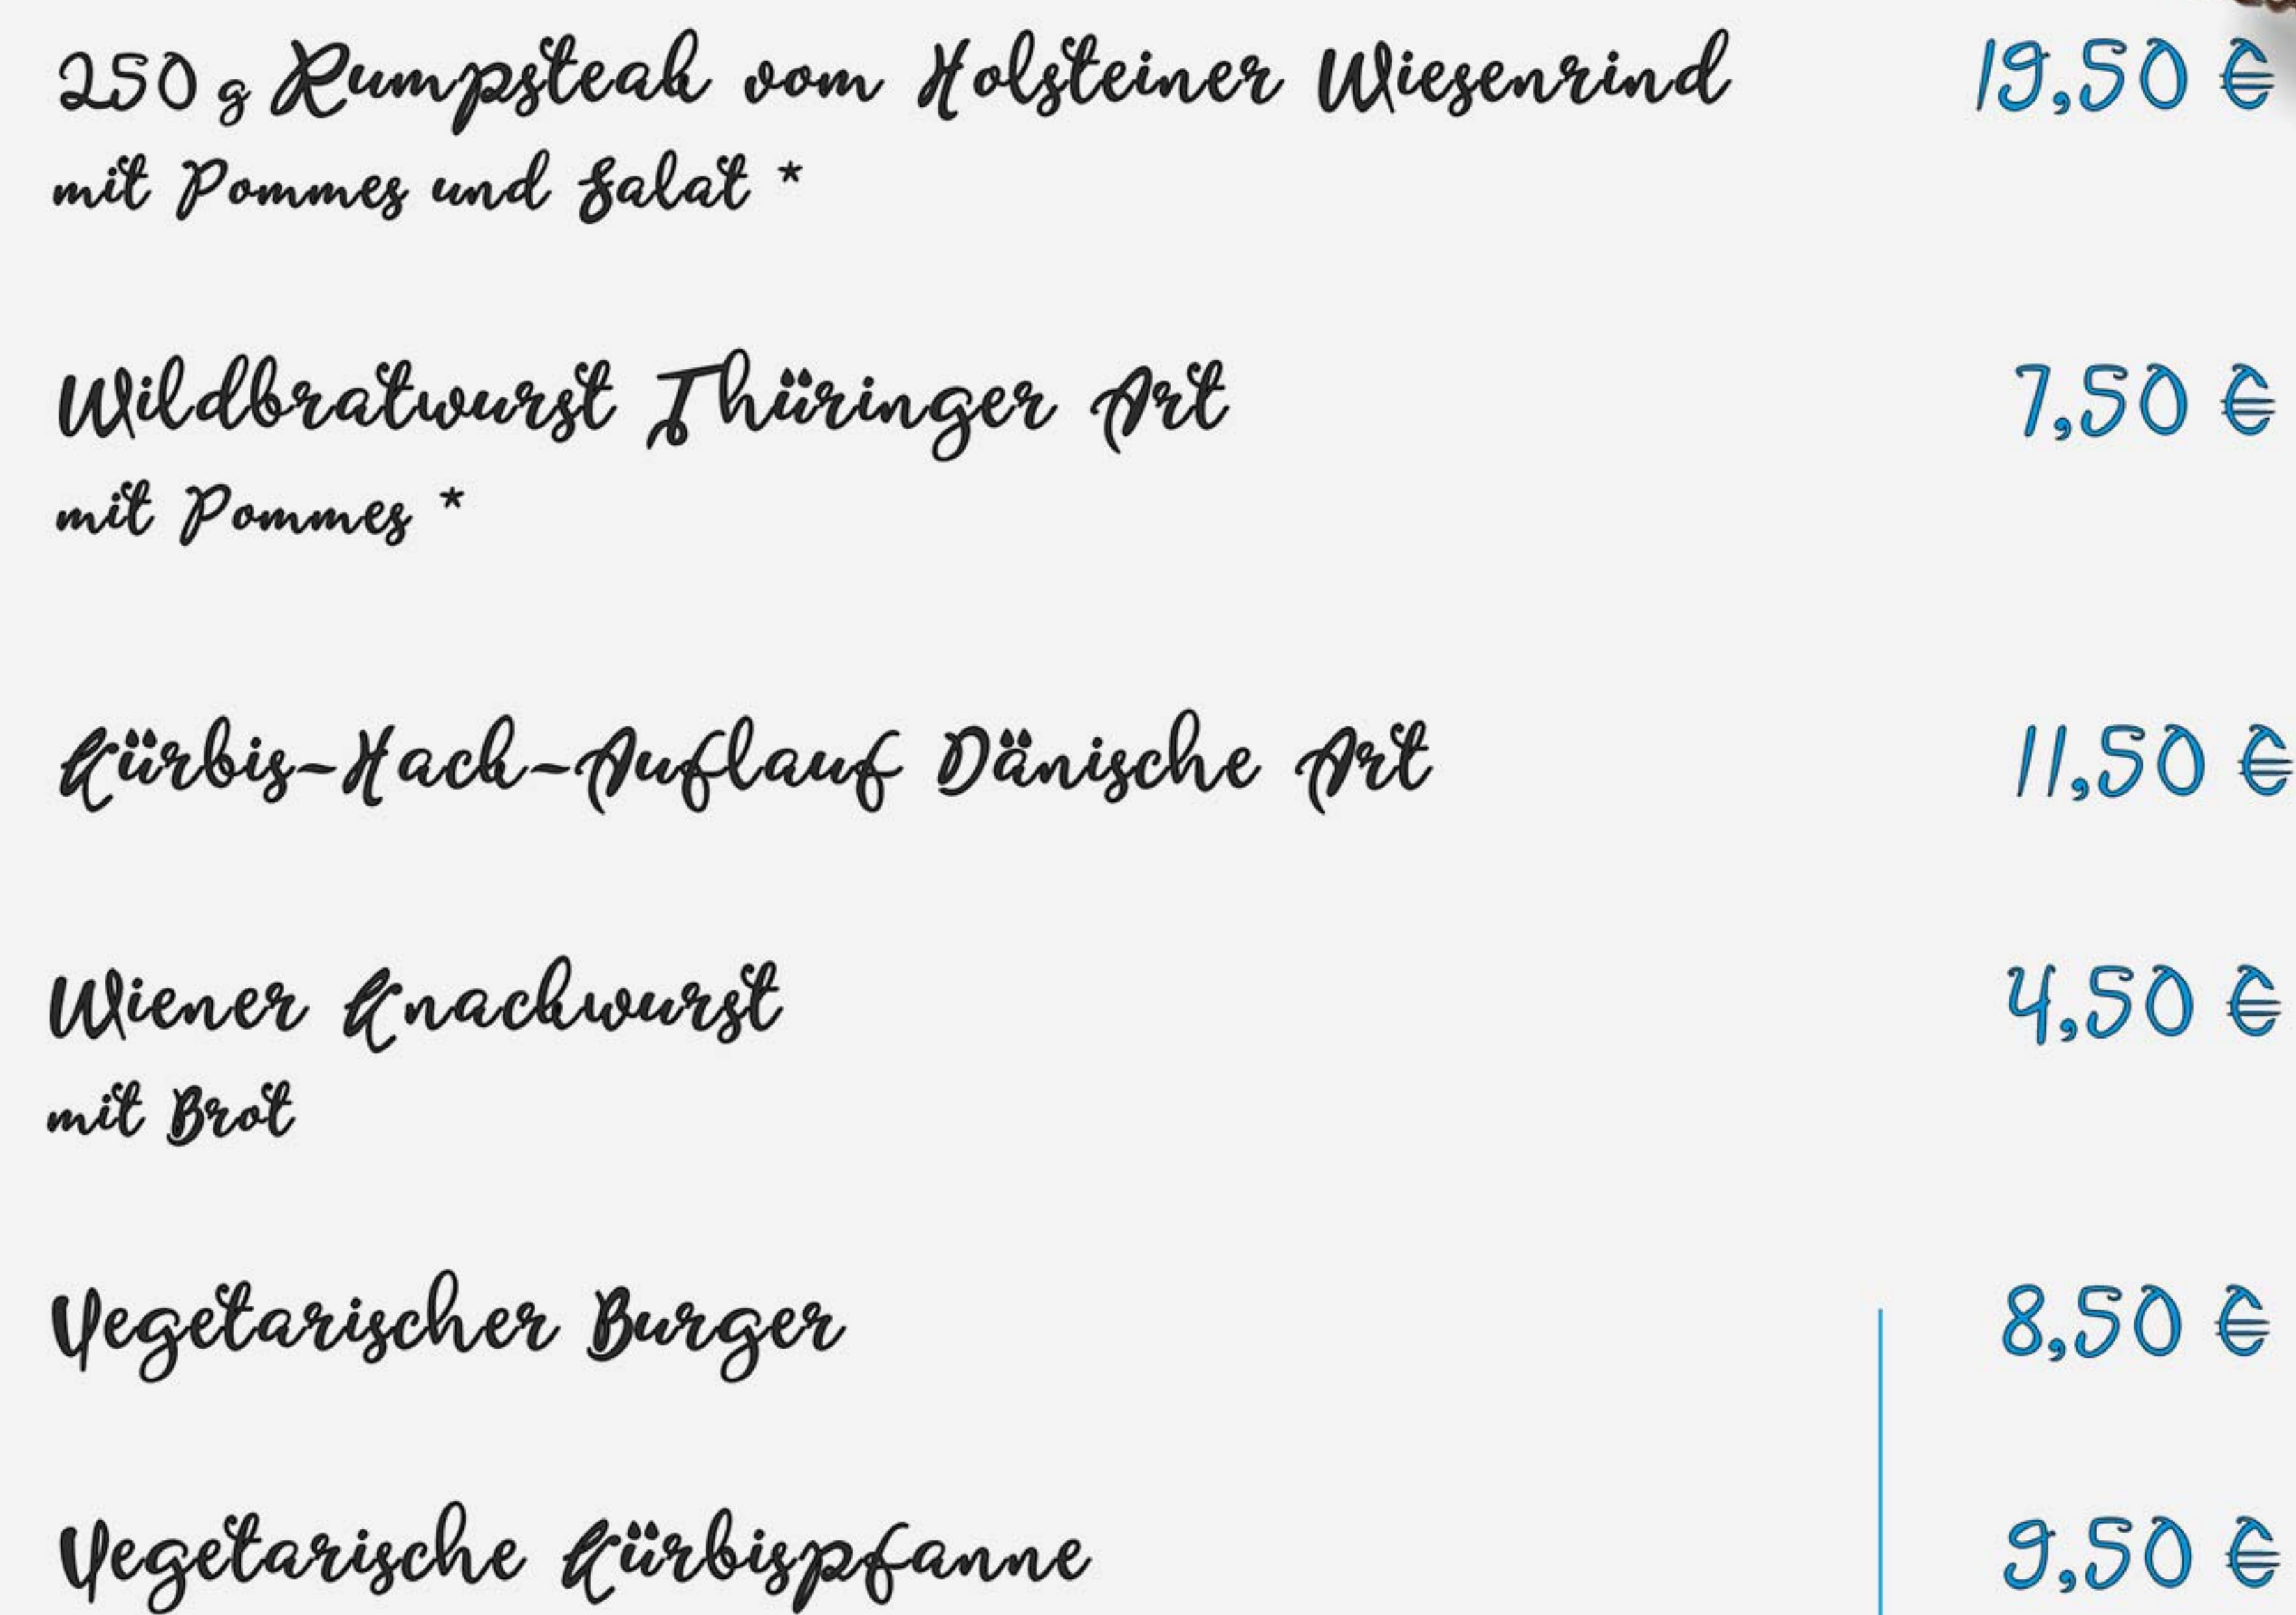 250 g Rumpsteak vom Holsteiner Wiesenrind 19,50 €
mit Pommes und Salat *
Wildbratwurst Thüringer Art 7,50 €
mit Pommes *
Kürbis-Hack-Auflauf Dänische Art 11,50 €
Wiener Knackwurst 4,50 €
mit Brot
Vegetarischer Burger 8,50 €
Vegetarische Kürbispfanne 9,50 €